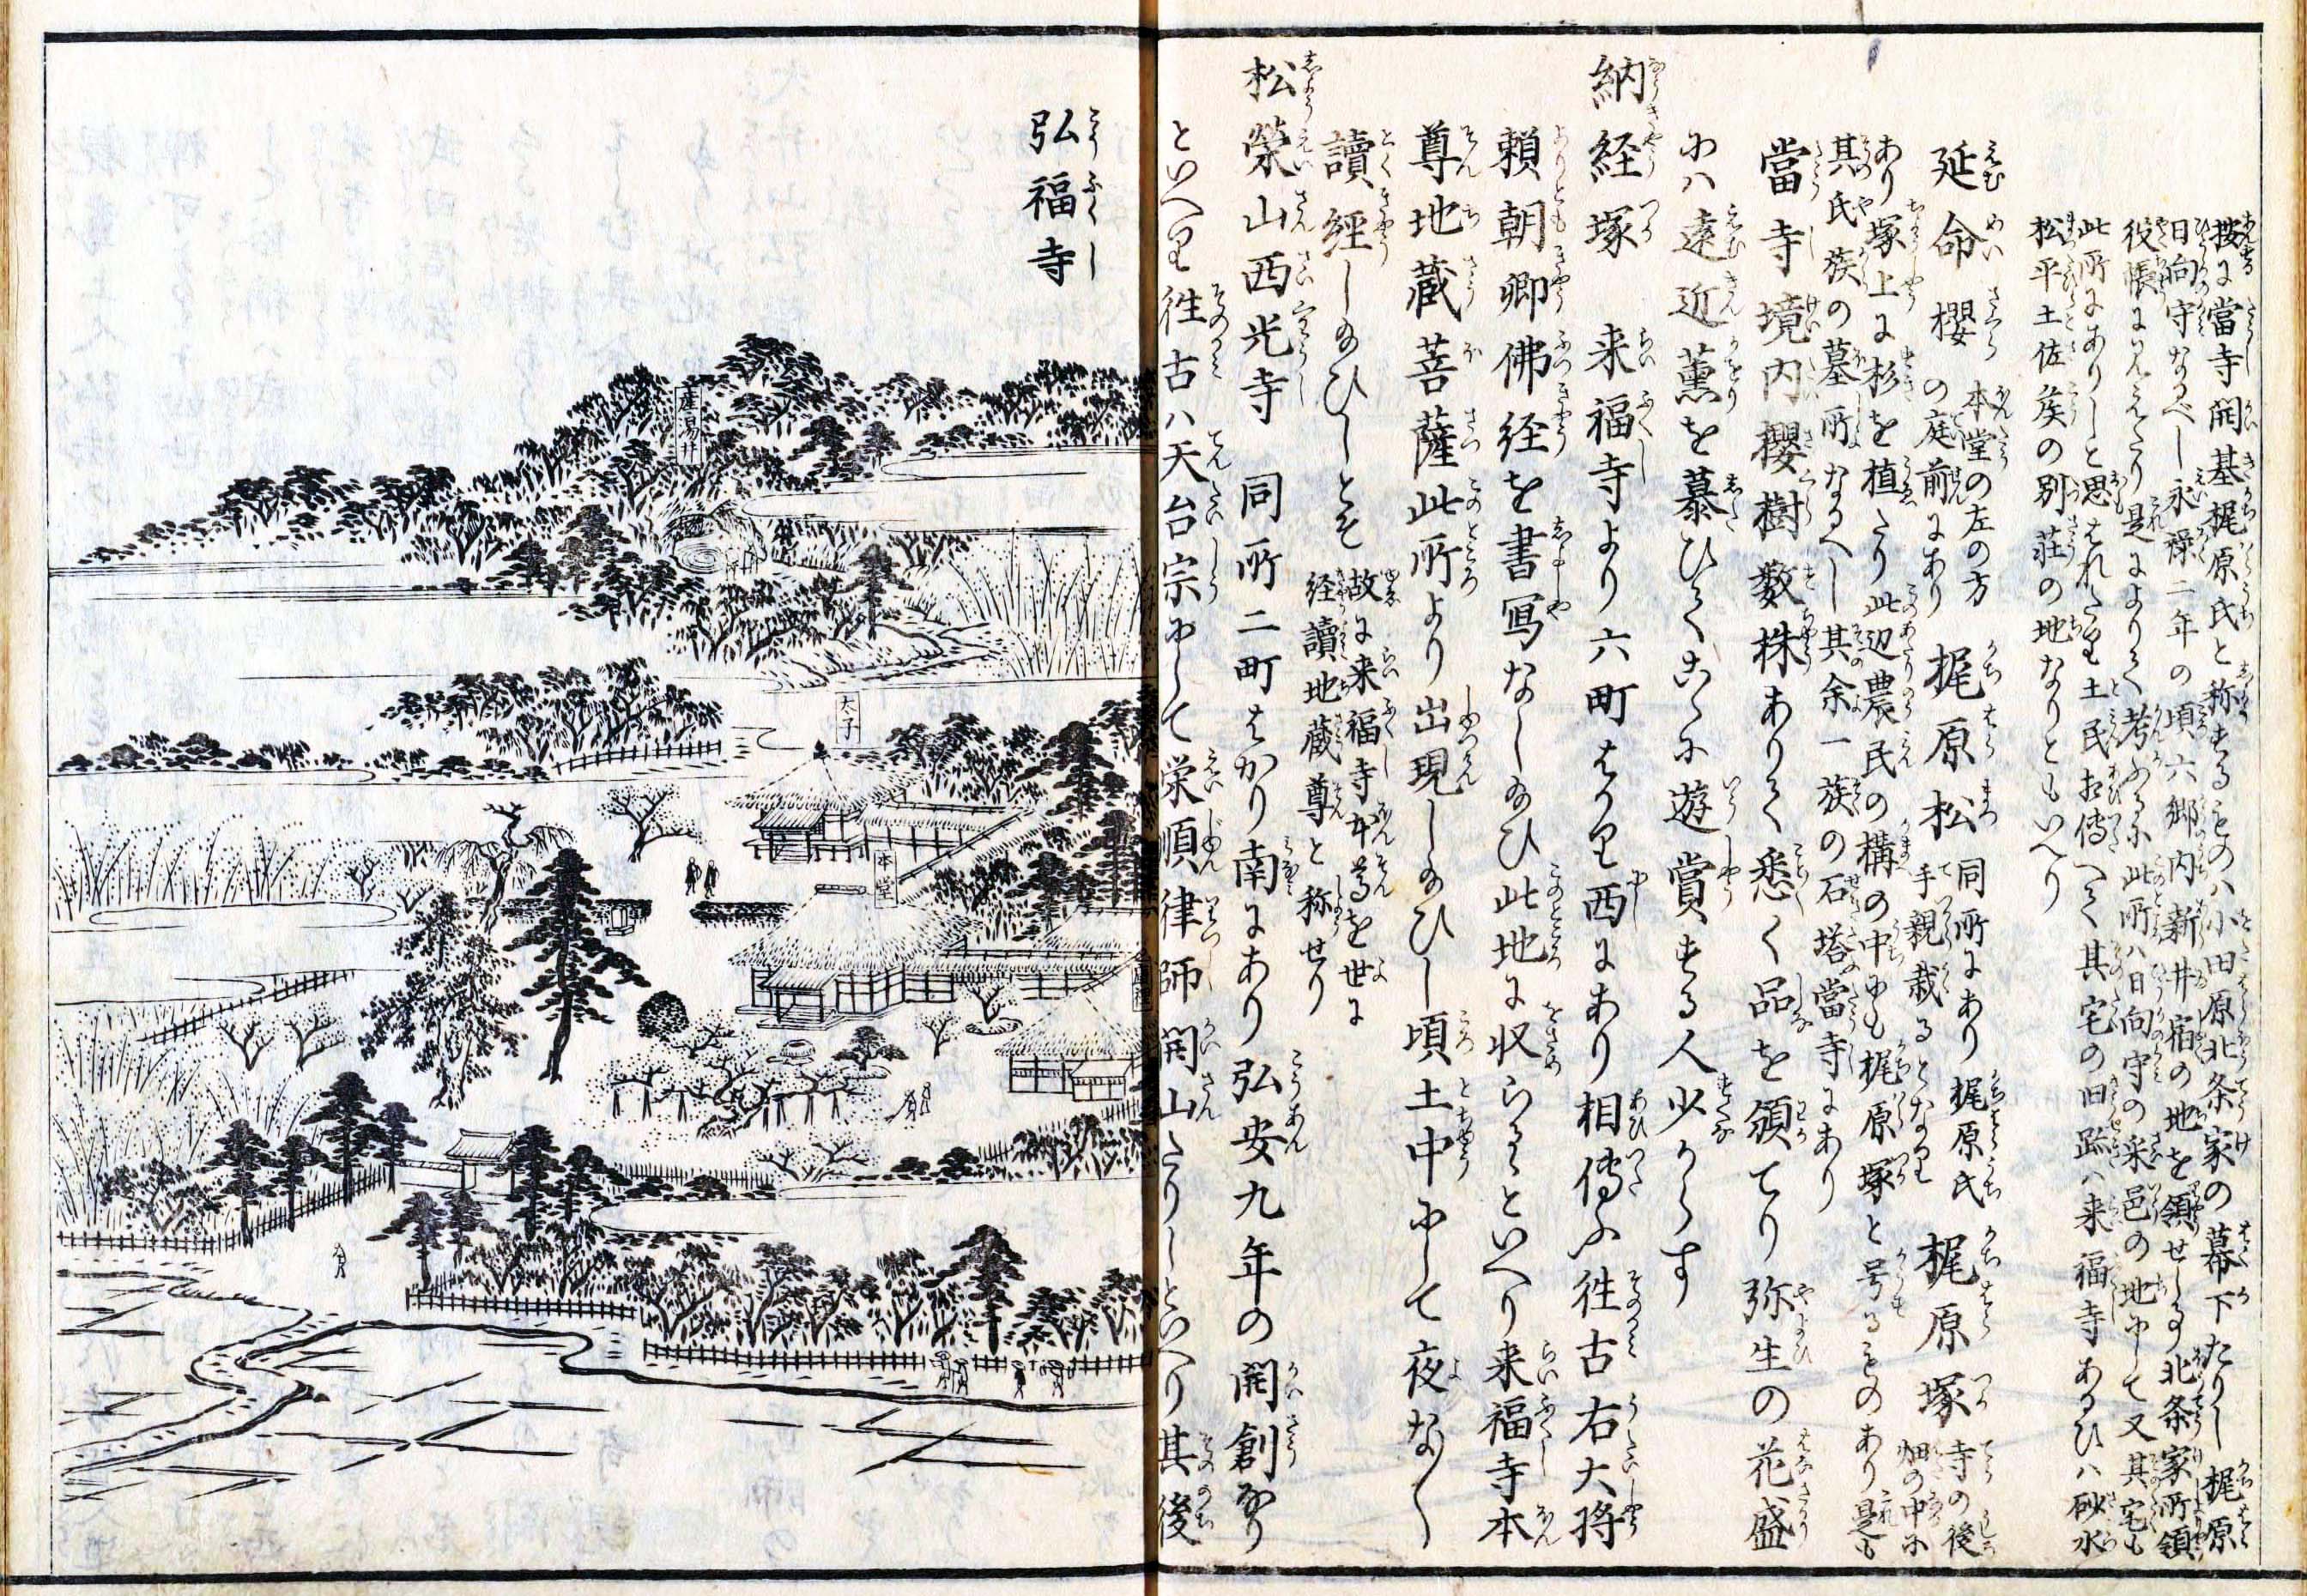 按に當寺開基梶原氏と称するものハ小田原北条家の幕下たりし梶原
日向守なるべし永禄二年の頃六郷内新井宿の地を領せしる北条家所領
役帳に見えたり是によりて考ふるに此所ハ日向守の采邑の地にして又其宅も
此所にありしと思はれたり土民お傳へて其宅の旧趾ハ来福寺あるひハ砂水
松平土佐侯の別荘の地なりともいへり
延命櫻 本堂の左の方
の庭前にあり
梶原松 同所にあり梶原氏
手親栽るとなり
梶原塚 寺の後
畑の中に
あり塚上に杉を植たり此辺農民の構の中にも梶原塚と号るものあり是も
其氏族の墓所なるへし其余一族の石塔當寺にあり
當寺境内櫻樹数株ありて悉く品を領てり弥生の花盛
にハ遠近薫を慕ひてこゝに遊賞する人少からす
納経塚 来福寺より六町はかり西にあり相傳ふ往古右大将
頼朝卿佛経を書写なし給ひ此地に収らるといへり来福寺本
尊地蔵菩薩此所より出現し給ひし頃土中にして夜な〱
讀經し給ひしとそ 故に来福寺本尊を世に
経讀地蔵尊と称せり
松榮山西光寺 同所二町はかり南にあり弘安九年の開創なり
といへり往古ハ天台宗にして栄順律師開山たりしといへり其後
弘福寺
産湯井
太子
本堂